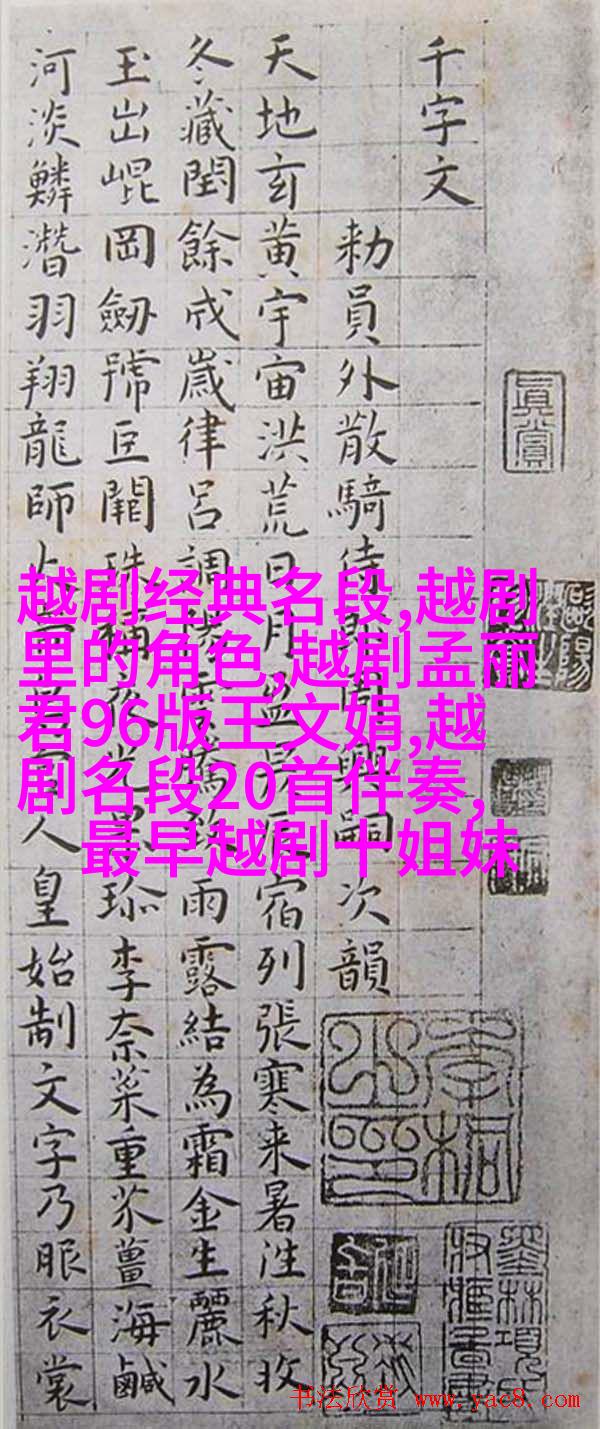 千字文
勑員外散騎侍郎周興嗣次韻
天地玄黄宇宙洪荒日月盈昃辰宿列張寒来暑往秋收
冬藏閏餘成歲律呂調陽雲騰致雨露結為霜金生麗水
玉出崐岡劒號巨闕珠稱夜光菓珎李柰菜重芥薑海鹹
河淡鱗潛羽翔龍師火帝鳥官人皇始制文字乃服衣裳
真賞
越剧经典名段,越剧
里的角色,越剧孟丽
君96版王文娟,越
剧名段20首伴奏,
最早越剧十姐妹
书法欣赏 www.yac8.com